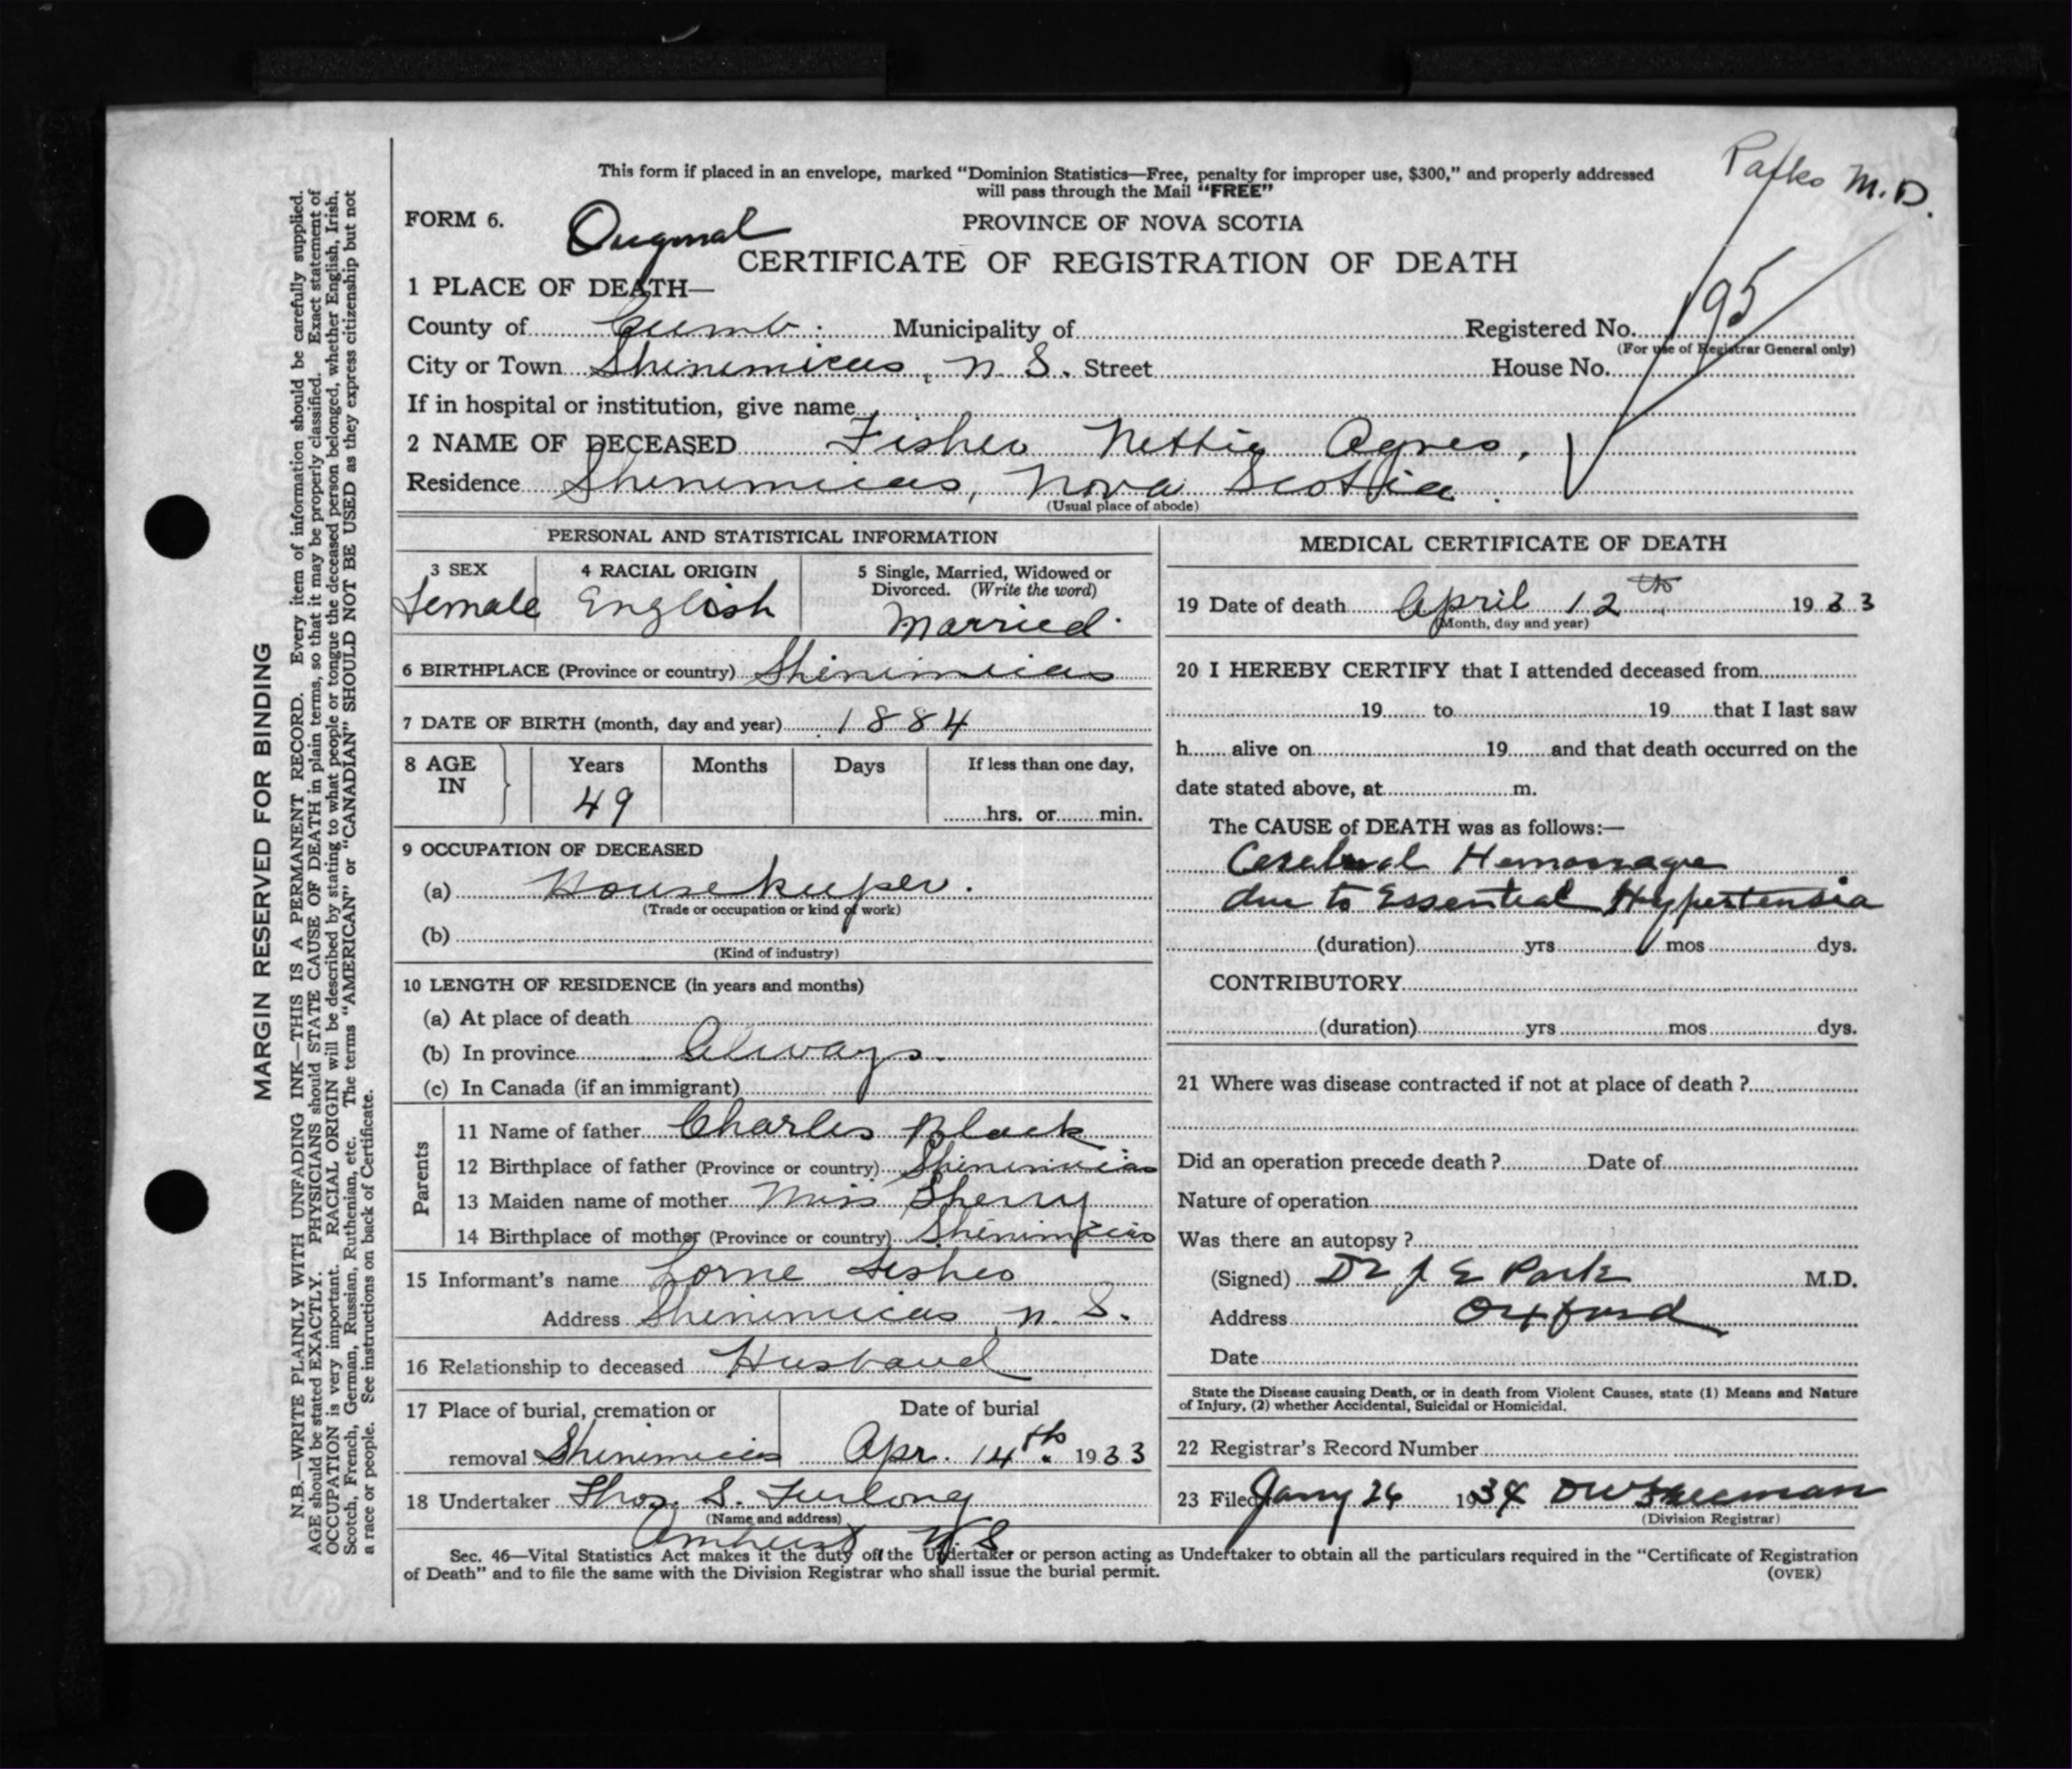 This form if placed in an envelope, marked "Dominion Statistics—Free, penalty for improper use, $300," and properly addressed
will pass through the Mail "FREE"
M.D.
FORM 6.
Original
PROVINCE OF NOVA SCOTIA
CERTIFICATE OF REGISTRATION OF DEATH
1 PLACE OF DEATH—
County of Cumb. Municipality of Registered No. 195
(For use of Registrar General only)
City or Town Shinimicas, N. S. Street House No.
If in hospital or institution, give name
2 NAME OF DECEASED Fisher Nettie Agnes.
Residence Shinimicas, Nova Scotia.
(Usual place of abode)
PERSONAL AND STATISTICAL INFORMATION
3 SEX
Female
4 RACIAL ORIGIN
English
5 Single, Married, Widowed or
Divorced. (Write the word)
Married.
6 BIRTHPLACE (Province or country) Shinimicas
7 DATE OF BIRTH (month, day and year) 1884
8 AGE IN
Years
49
Months
Days
If less than one day,
hrs. or min.
9 OCCUPATION OF DECEASED
(a) Housekeeper.
(Trade or occupation or kind of work)
(b)
(Kind of industry)
10 LENGTH OF RESIDENCE (in years and months)
(a) At place of death
(b) In province Always.
(c) In Canada (if an immigrant)
Parents
11 Name of father Charles Black
12 Birthplace of father (Province or country) Shinimicas
13 Maiden name of mother Miss Sherry
14 Birthplace of mother (Province or country) Shinimicas
15 Informant's name Lorne Fisher
Address Shinimicas N. S.
16 Relationship to deceased Husband
17 Place of burial, cremation or
removal Shinimicas
Date of burial
Apr. 14th. 1933
18 Undertaker Thos. S. Furlong
(Name and address)
Amherst N S
MEDICAL CERTIFICATE OF DEATH
19 Date of death April 12th 1933
(Month, day and year)
20 I HEREBY CERTIFY that I attended deceased from
19 to 19 that I last saw
h alive on 19 and that death occurred on the
date stated above, at m.
The CAUSE of DEATH was as follows:—
Cerebral Hemorrage
due to Essential Hypertensia
(duration) yrs mos dys.
CONTRIBUTORY
(duration) yrs mos dys.
21 Where was disease contracted if not at place of death ?
Did an operation precede death ? Date of
Nature of operation
Was there an autopsy ?
(Signed) Dr J E Park M.D.
Address Oxford
Date
State the Disease causing Death, or in death from Violent Causes, state (1) Means and Nature
of Injury, (2) whether Accidental, Suicidal or Homicidal.
22 Registrar's Record Number
23 Filed Jany 26 1934 D W Freeman
(Division Registrar)
Sec. 46—Vital Statistics Act makes it the duty of the Undertaker or person acting as Undertaker to obtain all the particulars required in the "Certificate of Registration
of Death" and to file the same with the Division Registrar who shall issue the burial permit.
(OVER)
MARGIN RESERVED FOR BINDING
N.B.—WRITE PLAINLY WITH UNFADING INK—THIS IS A PERMANENT RECORD. Every item of information should be carefully supplied.
AGE should be stated EXACTLY. PHYSICIANS should STATE CAUSE OF DEATH in plain terms, so that it may be properly classified. Exact statement of
OCCUPATION is very important. RACIAL ORIGIN will be described by stating to what people or tongue the deceased person belonged, whether English, Irish,
Scotch, French, German, Russian, Ruthenian, etc. The terms "AMERICAN" or "CANADIAN" SHOULD NOT BE USED as they express citizenship but not
a race or people. See instructions on back of Certificate.